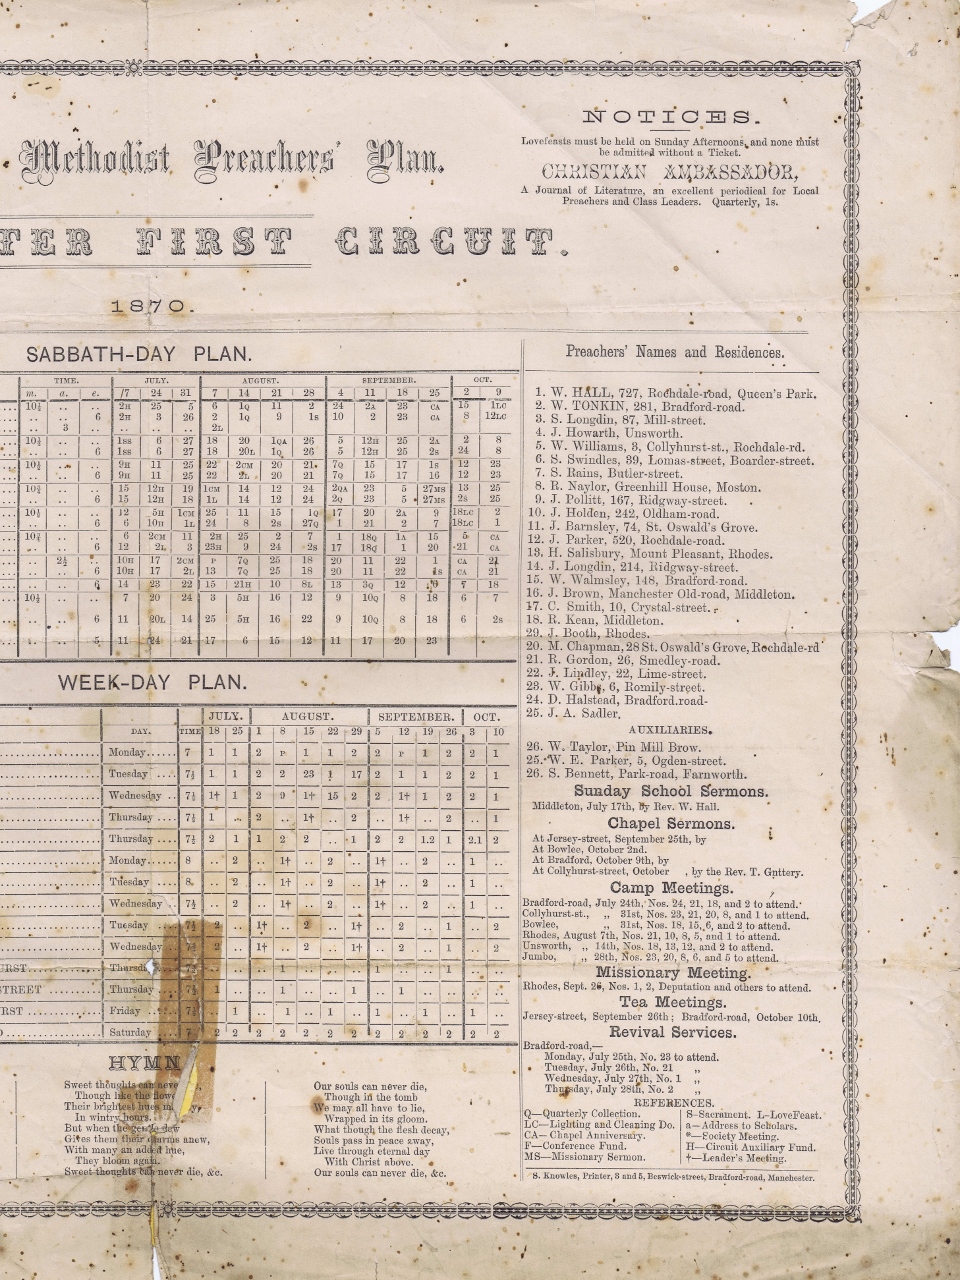 Methodist Preachers' Plan.
TER FIRST CIRCUIT.
1870.
NOTICES.
Lovefeasts must be held on Sunday Afternoons, and none must
be admitted without a Ticket.
CHRISTIAN AMBASSADOR,
A Journal of Literature, an excellent periodical for Local
Preachers and Class Leaders. Quarterly, 1s.
SABBATH-DAY PLAN.
TIME. JULY. AUGUST. SEPTEMBER. OCT.
m. a. e. 17 24 31 7 14 21 28 4 11 18 25 2 9
... 10½ .. .. 2H 25 5 6 1Q 11 2 24 2A 23 CA 15 1LC
... .. .. 6 2H 3 26 2 1Q 9 1s 10 2 23 CA 8 12LC
... .. 3 .. .. .. .. 2L
... 10½ .. .. 1ss 6 27 18 20 1QA 26 5 12H 25 2A 2 8
... .. .. 6 1ss 6 27 18 20L 1Q 26 5 12H 25 2s 24 8
... 10½ .. .. 9H 11 25 22 2CM 20 21 7Q 15 17 1s 12 23
... .. .. 6 9H 11 25 22 2L 20 21 7Q 15 17 16 12 23
... 10¾ .. .. 15 12H 19 1CM 14 12 24 2QA 23 5 27MS 13 25
... .. .. 6 15 12H 18 1L 14 12 24 2Q 23 5 27MS 2s 25
... 10½ .. .. 12 5H 1CM 25 11 15 1Q 17 20 2A 9 18LC 2
... .. .. 6 6 10H 1L 24 8 2s 27Q 1 21 2 7 18LC 1
... 10¾ .. .. 6 2CM 11 2H 25 2 7 1 18Q 1A 15 5 CA
... .. .. 6 12 2L 3 23H 9 24 2s 17 18Q 1 20 21 CA
... .. 2½ .. 10H 17 2CM P 7Q 25 18 20 11 22 1 CA 21
... .. .. 6 10H 17 2L 13 7Q 25 18 20 11 22 1s CA 21
... .. .. 6 14 23 22 15 21H 10 8L 13 3Q 12 9 7 18
... 10½ .. .. 7 20 24 3 5H 16 12 9 10Q 8 18 6 7
... .. .. 6 11 20L 14 25 5H 16 22 9 10Q 8 18 6 2s
... .. .. 5 11 24 21 17 6 15 12 11 17 20 23
WEEK-DAY PLAN.
JULY. AUGUST. SEPTEMBER. OCT.
DAY. TIME 18 25 1 8 15 22 29 5 12 19 26 3 10
Monday.... 7 1 1 2 P 1 1 2 2 P 1 2 2 1
Tuesday .... 7½ 1 1 2 2 23 1 17 2 1 1 2 2 1
Wednesday .. 7½ 1† 1 2 9 1† 15 2 2 1† 1 2 2 1
Thursday .... 7½ 1 .. 2 .. 1† .. 2 .. 1† .. 2 .. 1
Thursday .... 7½ 2 1 1 2 2 .. 1 2 2 1.2 1 2.1 2
Monday .... 8 .. 2 .. 1† .. 2 .. 1† .. 2 .. 1 ..
Tuesday .... 8 .. 2 .. 1† .. 2 .. 1† .. 2 .. 1 ..
Wednesday .. 7½ .. 2 .. 1† .. 2 .. 1† .. 2 .. 1 ..
Tuesday .... 7½ 2 .. 1† .. 2 .. 1† .. 2 .. 1 .. 2
Wednesday.. 7½ 2 .. 1† .. 2 .. 1† .. 2 .. 1 .. 2
URST Thursday .. .. .. 1 .. .. .. 1 .. .. 1 .. ..
STREET Thursday .... 7½ 1 .. .. 1 .. .. 1 .. 1 .. .. 1 ..
RST Friday .... .. 1 .. 1 .. 1 .. 1 .. 1 .. 1 ..
Saturday .... 7 2 2 2 2 2 2 2 2 2 2 2 2 2
HYMN
Sweet thoughts can never
Though like the flow
Their brightest hues m
In wintry hours.
But when the gentle dew
Gives them their charms anew,
With many an added hue,
They bloom again.
Sweet thoughts can never die, &c.
Our souls can never die,
Though in the tomb
We may all have to lie,
Wrapped in its gloom.
What though the flesh decay,
Souls pass in peace away,
Live through eternal day
With Christ above.
Our souls can never die, &c.
Preachers' Names and Residences.
1. W. HALL, 727, Rochdale-road, Queen's Park.
2. W. TONKIN, 281, Bradford-road.
3. S. Longdin, 87, Mill-street.
4. J. Howarth, Unsworth.
5. W. Williams, 3, Collyhurst-st., Rochdale-rd.
6. S. Swindles, 39, Lomas-street, Boarder-street.
7. S. Rains, Butler-street.
8. R. Naylor, Greenhill House, Moston.
9. J. Pollitt, 167, Ridgway-street.
10. J. Holden, 242, Oldham-road.
11. J. Barnsley, 74, St. Oswald's Grove.
12. J. Parker, 520, Rochdale-road.
13. H. Salisbury, Mount Pleasant, Rhodes.
14. J. Longdin, 214, Ridgway-street.
15. W. Walmsley, 148, Bradford-road.
16. J. Brown, Manchester Old-road, Middleton.
17. C. Smith, 10, Crystal-street.
18. R. Kean, Middleton.
29. J. Booth, Rhodes.
20. M. Chapman, 28 St. Oswald's Grove, Rochdale-rd
21. R. Gordon, 26, Smedley-road.
22. J. Lindley, 22, Lime-street.
23. W. Gibby, 6, Romily-street.
24. D. Halstead, Bradford.road-
25. J. A. Sadler.
AUXILIARIES.
26. W. Taylor, Pin Mill Brow.
25. W. E. Parker, 5, Ogden-street.
26. S. Bennett, Park-road, Farnworth.
Sunday School Sermons.
Middleton, July 17th, by Rev. W. Hall.
Chapel Sermons.
At Jersey-street, September 25th, by
At Bowlee, October 2nd.
At Bradford, October 9th, by
At Collyhurst-street, October , by the Rev. T. Guttery.
Camp Meetings.
Bradford-road, July 24th, Nos. 24, 21, 18, and 2 to attend.
Collyhurst-st., „ 31st, Nos. 23, 21, 20, 8, and 1 to attend.
Bowlee, „ 31st, Nos. 18, 15, 6, and 2 to attend.
Rhodes, August 7th, Nos. 21, 10, 8, 5, and 1 to attend.
Unsworth, „ 14th, Nos. 18, 13, 12, and 2 to attend.
Jumbo, „ 28th, Nos. 23, 20, 8, 6, and 5 to attend.
Missionary Meeting.
Rhodes, Sept. 26, Nos. 1, 2, Deputation and others to attend.
Tea Meetings.
Jersey-street, September 26th; Bradford-road, October 10th.
Revival Services.
Bradford-road,—
Monday, July 25th, No. 23 to attend.
Tuesday, July 26th, No. 21 „
Wednesday, July 27th, No. 1 „
Thursday, July 28th, No. 2 „
REFERENCES.
Q—Quarterly Collection.
LC—Lighting and Cleaning Do.
CA—Chapel Anniversary.
F—Conference Fund.
MS—Missionary Sermon.
S—Sacrament. L—LoveFeast.
a—Address to Scholars.
*—Society Meeting.
H—Circuit Auxiliary Fund.
†—Leader's Meeting.
S. Knowles, Printer, 3 and 5, Beswick-street, Bradford-road, Manchester.